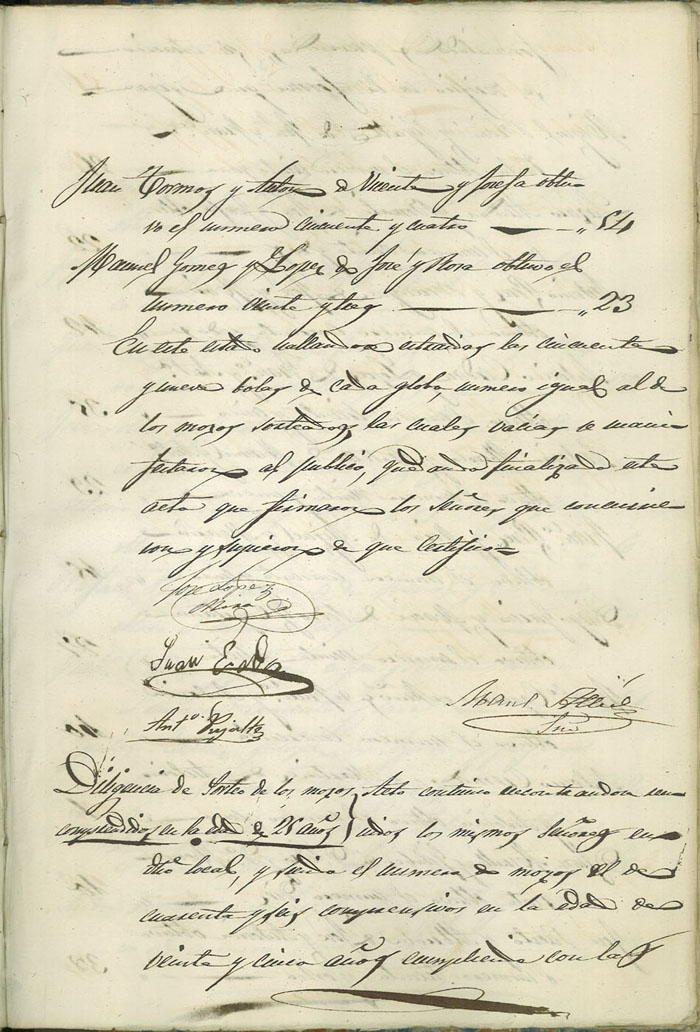 Juan Tormos y Antor de Vicente y Josefa obtu
vo el numero cincuenta y cuatro — „ 54
Manuel Gomez y Lopez de José y Rosa obtuvo el
numero veinte y tres — „ 23
En este estado hallandose estraidas las cincuenta
y nueve bolas de cada globo, numero igual al de
los mozos sorteados, las cuales vacias se mani
festaron al publico, quedando finalizado este
acto que firmaron los Señores que concurrie
ron y supieron de que Certifico =
José Lopez
Mira
Juan
Ant.º Pujalte
Man.l
Srio
Diligencia de Sorteo de los mozos } Acto continuo encontrandose reu
comprendidos en la edad de 25 años } nidos los mismos Señores en
dho local, y siendo el numero de mozos el de
cuarenta y seis comprensivos en la edad de
veinte y cinco años cumpliendo con la